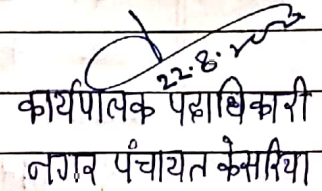 22.8.
कार्यपालक पदाधिकारी
नगर पंचायत केसरिया